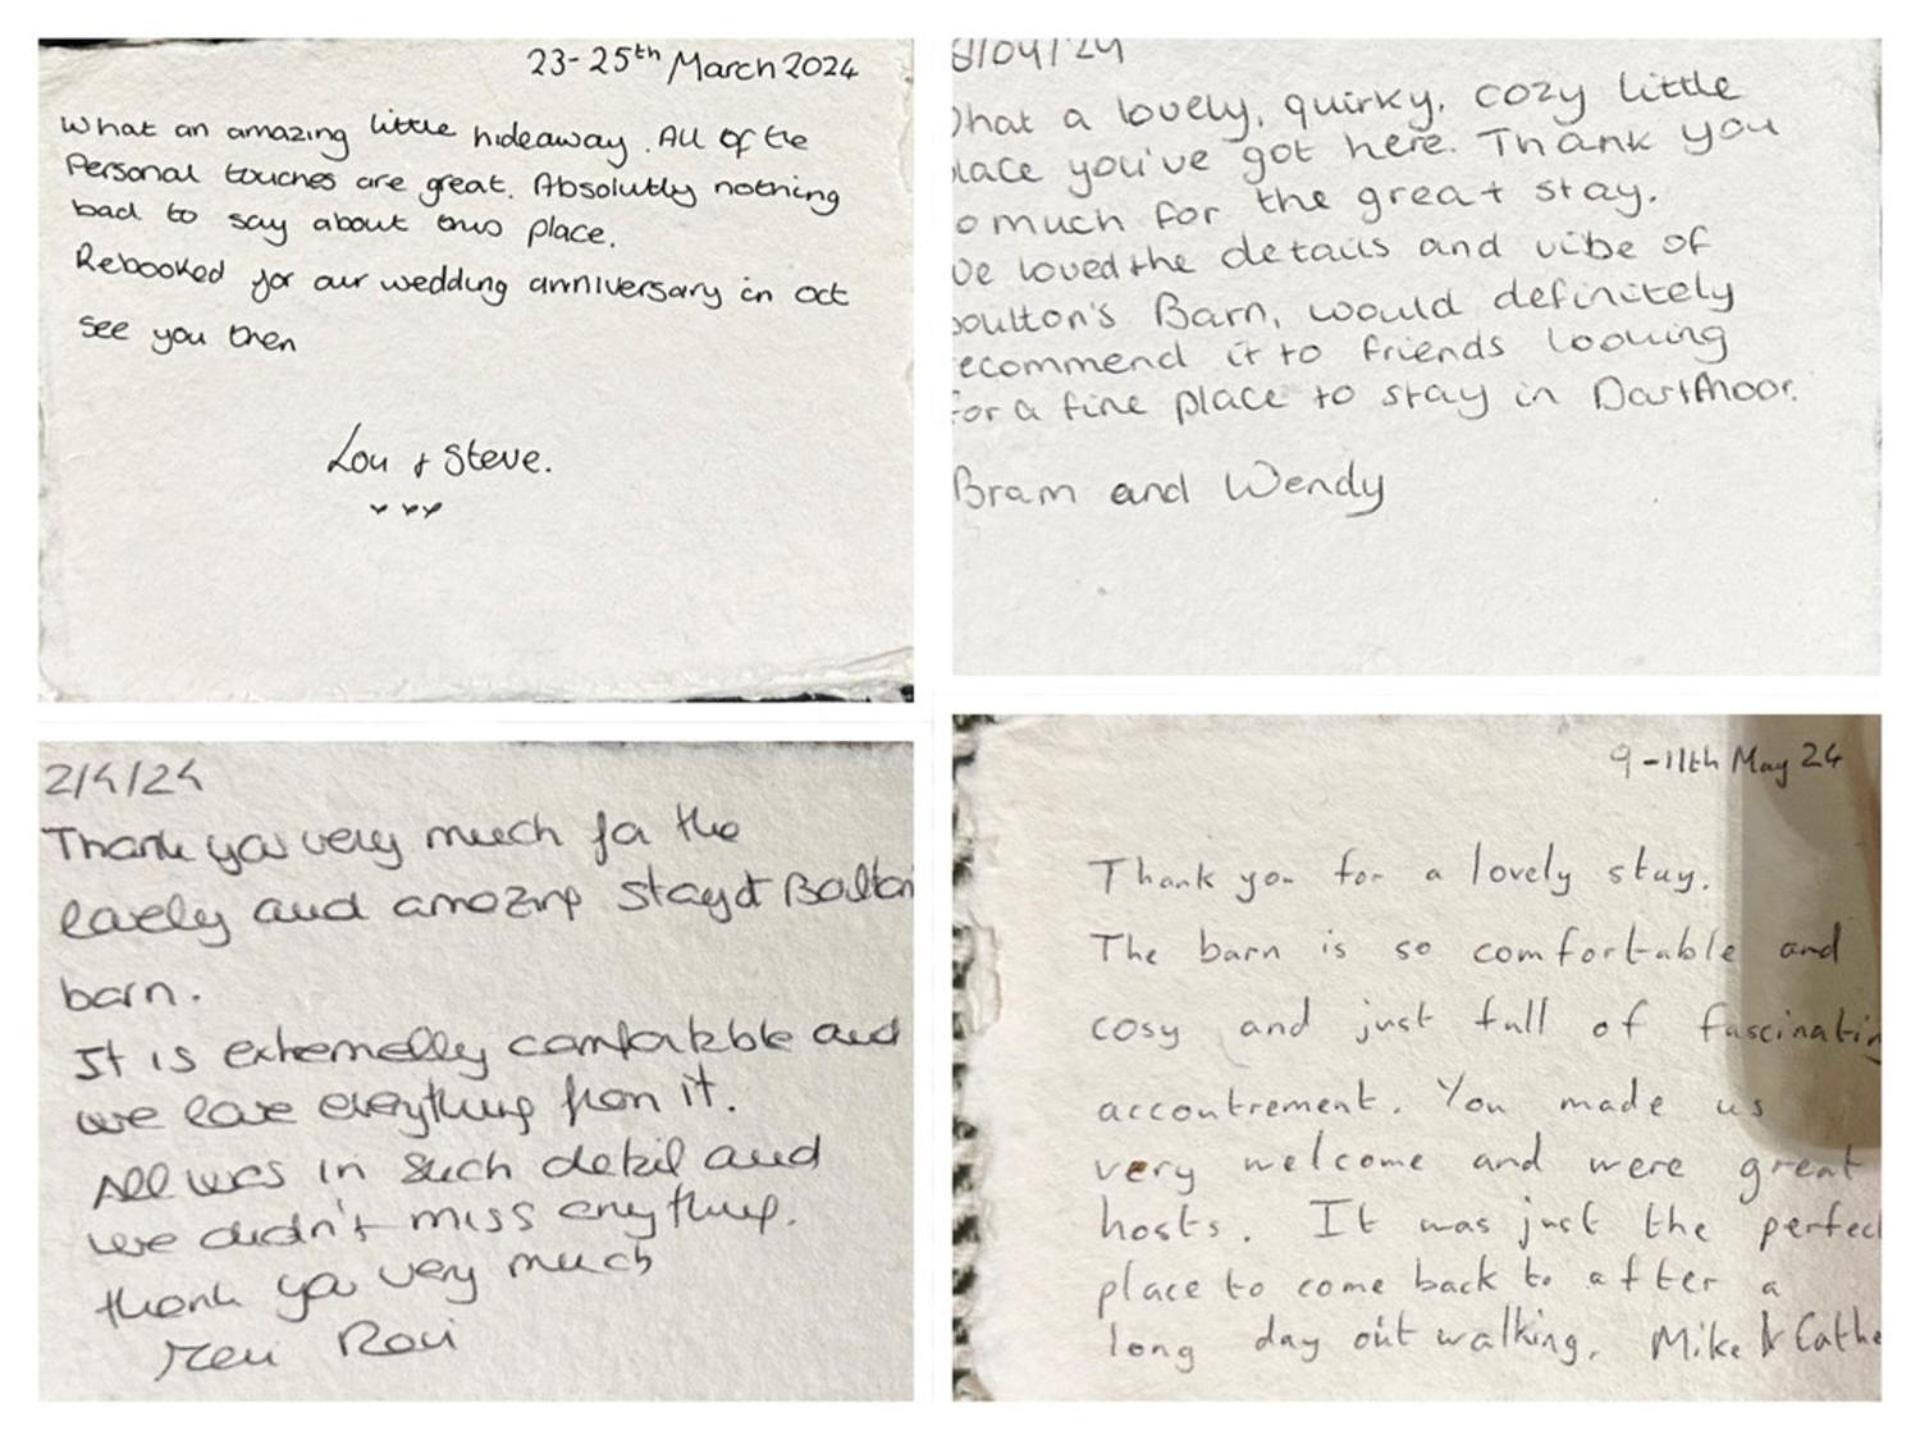 23-25th March 2024
What an amazing little hideaway. All of the
Personal touches are great. Absolutly nothing
bad to say about this place.
Rebooked for our wedding anniversary in oct
See you then
Lou & Steve.
8/04/24
What a lovely, quirky, cozy little
place you've got here. Thank you
o much for the great stay.
We loved the details and vibe of
oulton's Barn, would definitely
ecommend it to friends looking
for a fine place to stay in Dartmoor.
Bram and Wendy
2/4/24
Thank you very much for the
lovely and amazing stay at Boulton
barn.
It is extremelly comfortable and
we love everything from it.
All was in such detail and
we didn't miss anything.
thank you very much
9-11th May 24
Thank you for a lovely stay.
The barn is so comfortable and
cosy and just full of fascinatin
accoutrement. You made us
very welcome and were great
hosts. It was just the perfec
place to come back to after a
long day out walking. Mike & Cathe